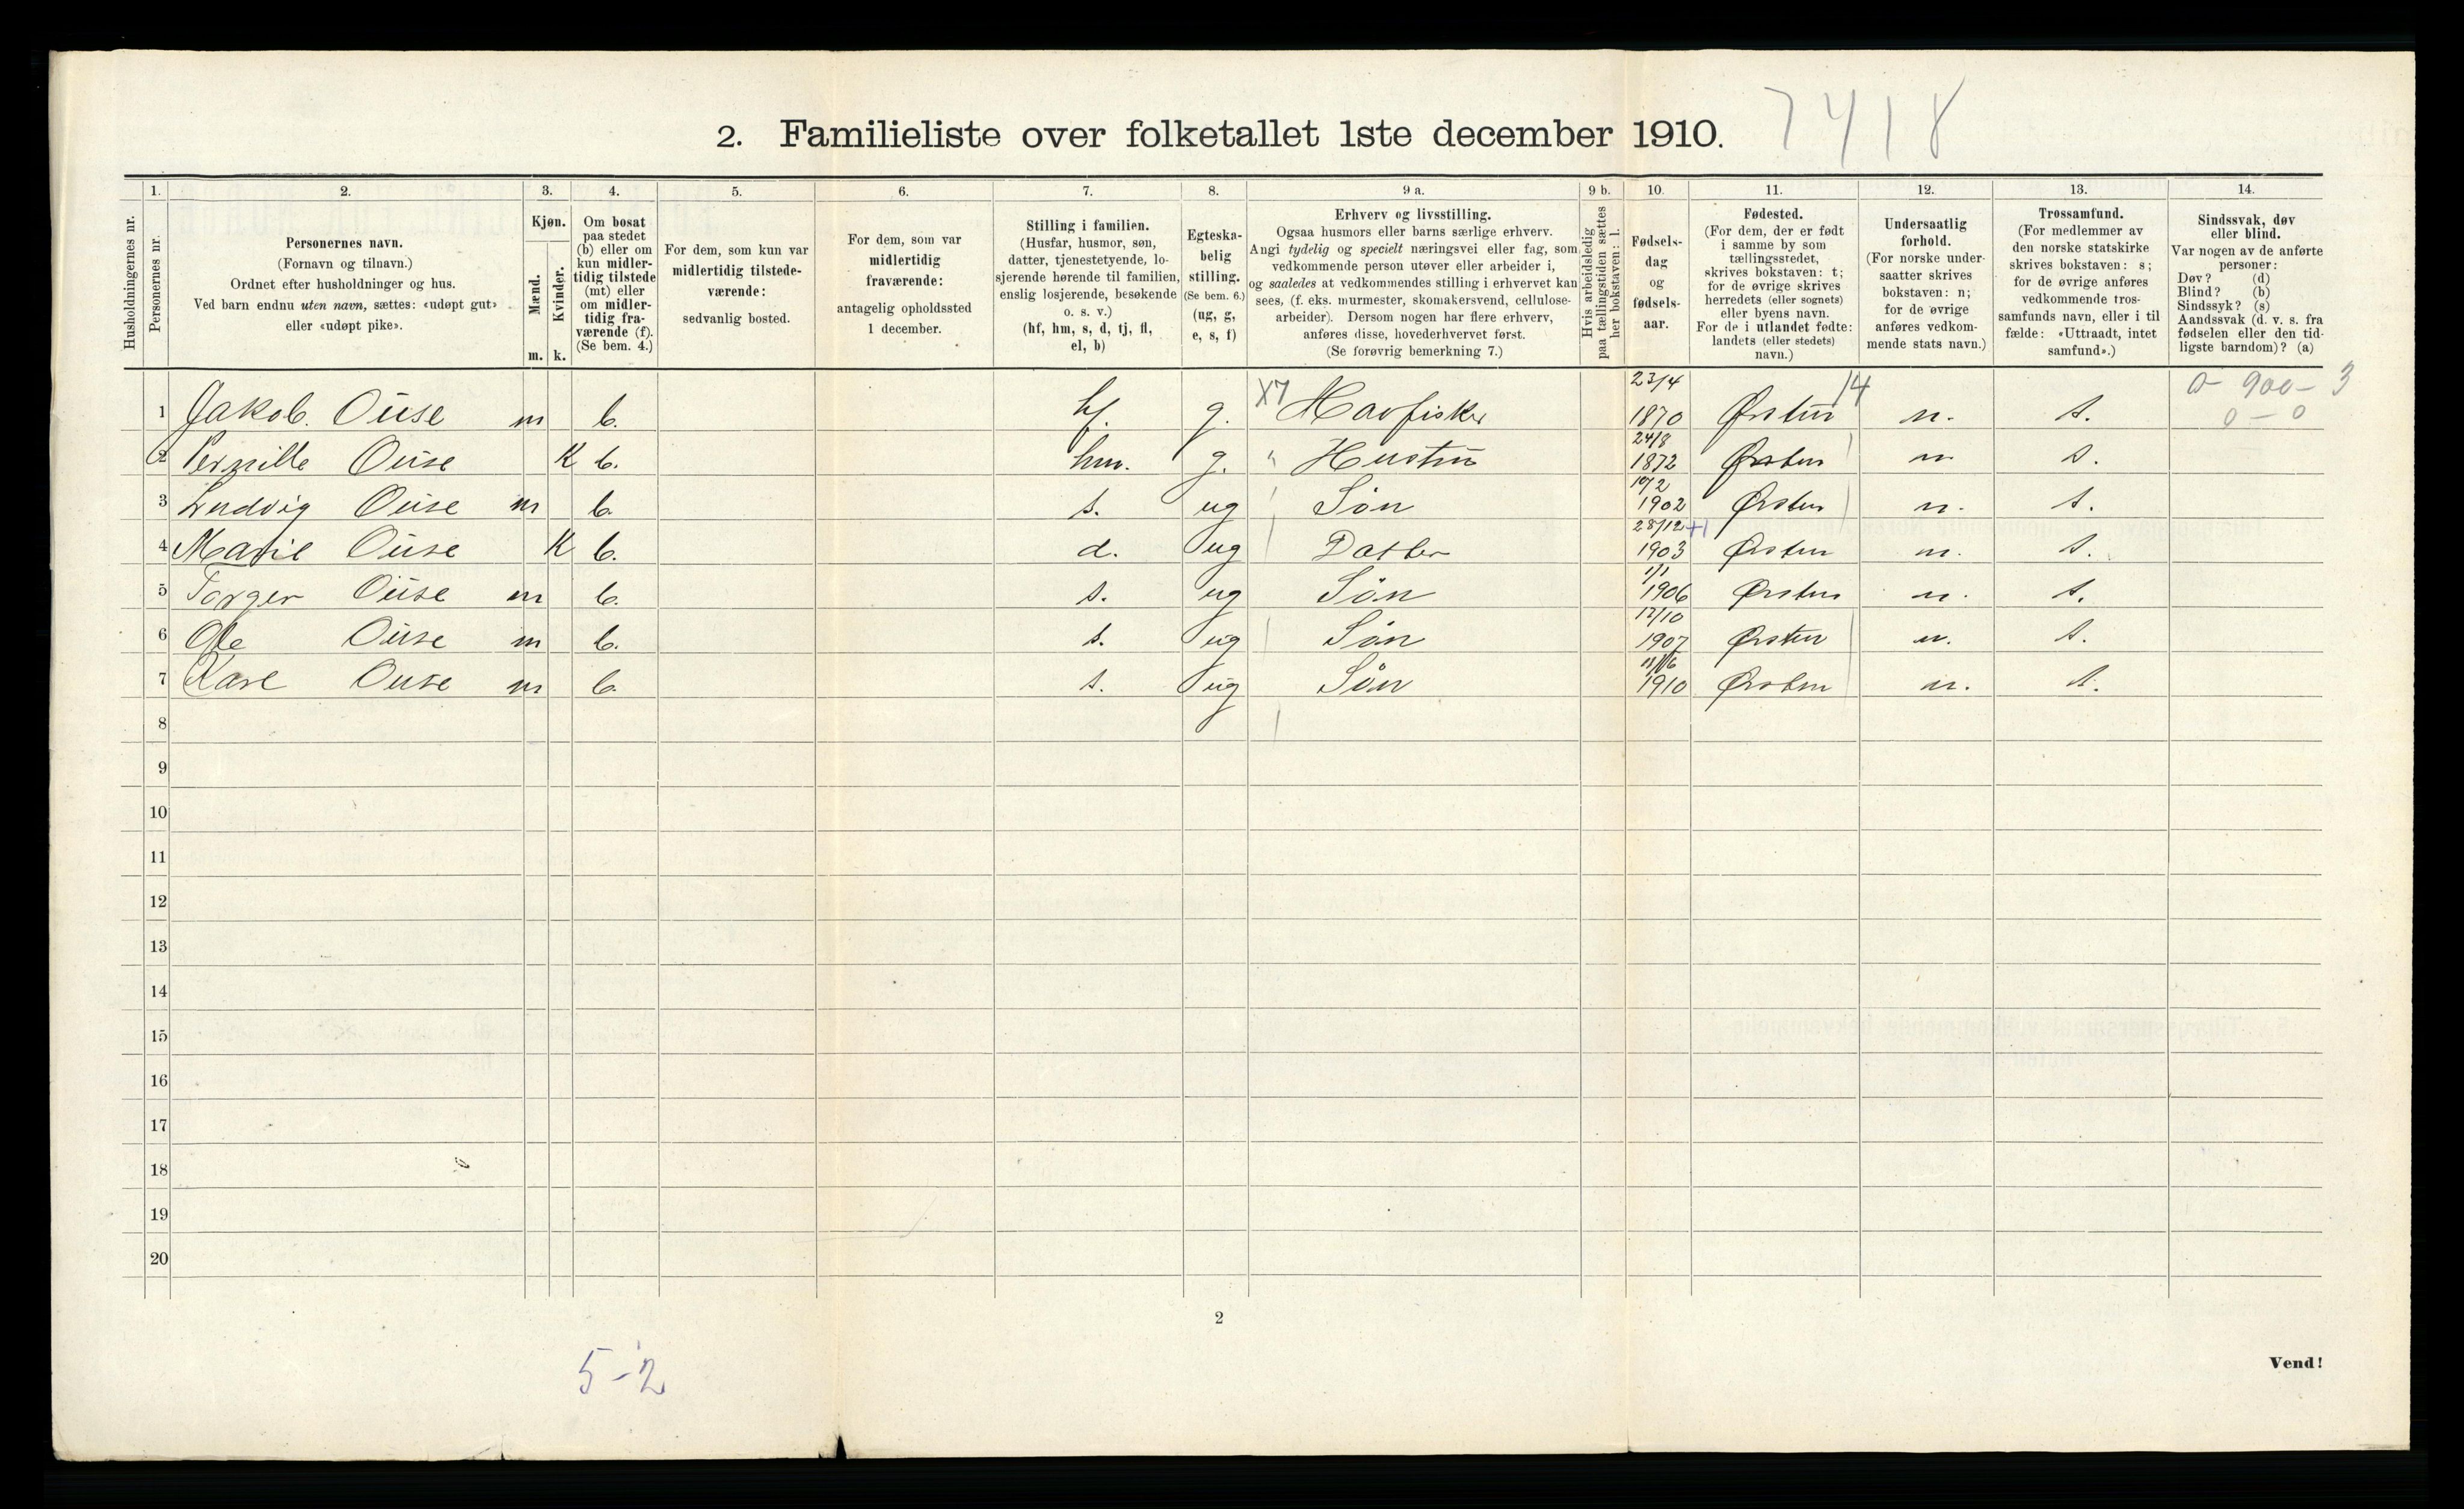 2. Familieliste over folketallet 1ste december 1910. 7418
Husholdningernes nr.
1.
Personernes nr.
2.
Personernes navn.
(Fornavn og tilnavn.)
Ordnet efter husholdninger og hus.
Ved barn endnu uten navn, sættes: «udøpt gut»
eller «udøpt pike».
3.
Kjøn.
Mænd.
Kvinder.
m. k.
4.
Om bosat
paa stedet
(b) eller om
kun midler-
tidig tilstede
(mt) eller
om midler-
tidig fra-
værende (f).
(Se bem. 4.)
5.
For dem, som kun var
midlertidig tilstede-
værende:
sedvanlig bosted.
6.
For dem, som var
midlertidig
fraværende:
antagelig opholdssted
1 december.
7.
Stilling i familien.
(Husfar, husmor, søn,
datter, tjenestetyende, lo-
sjerende hørende til familien,
enslig losjerende, besøkende
o. s. v.)
(hf, hm, s, d, tj, fl,
el, b)
8.
Egteska-
belig
stilling.
(Se bem. 6.)
(ug, g,
e, s, f)
9 a.
Erhverv og livsstilling.
Ogsaa husmors eller barns særlige erhverv.
Angi tydelig og specielt næringsvei eller fag, som
vedkommende person utøver eller arbeider i,
og saaledes at vedkommendes stilling i erhvervet kan
sees, (f. eks. murmester, skomakersvend, cellulose-
arbeider). Dersom nogen har flere erhverv,
anføres disse, hovederhvervet først.
(Se forøvrig bemerkning 7.)
9 b.
Hvis arbeidsledig
paa tællingstiden sættes
her bokstaven: l.
10.
Fødsels-
dag
og
fødsels-
aar.
11.
Fødested.
(For dem, der er født
i samme by som
tællingsstedet,
skrives bokstaven: t;
for de øvrige skrives
herredets (eller sognets)
eller byens navn.
For de i utlandet fødte:
landets (eller stedets)
navn.)
12.
Undersaatlig
forhold.
(For norske under-
saatter skrives
bokstaven: n;
for de øvrige
anføres vedkom-
mende stats navn.)
13.
Trossamfund.
(For medlemmer av
den norske statskirke
skrives bokstaven: s;
for de øvrige anføres
vedkommende tros-
samfunds navn, eller i til
fælde: «Uttraadt, intet
samfund».)
14.
Sindssvak, døv
eller blind.
Var nogen av de anførte
personer:
Døv? (d)
Blind? (b)
Sindssyk? (s)
Aandssvak (d. v. s. fra
fødselen eller den tid-
ligste barndom)? (a)
X7 23/4 14 0 - 900 - 3
1 Jakob. Ouse m b. hf. g. Havfisker 1870 Ørsten n. s. 0 - 0
24/8
2 Pernille Ouse K b. hm. g. " Hustru 1872 Ørsten n s.
3 Ludvig Ouse m b. s. ug Søn 1902 Ørsten n. s.
28/12 +1
4 Marie Ouse K b. d. ug Datter 1903 Ørsten n. s.
1/1
5 Torger Ouse m b. s. ug Søn 1906 Ørsten n. s.
12/10
6 Ole Ouse m b. s. ug Søn 1907 Ørsten n. s.
7 Kare Ouse m b. s. ug Søn 1910 Ørsten n. s.
8
9
10
11
12
13
14
15
16
17
18
19
20
2
5-2
Vend!